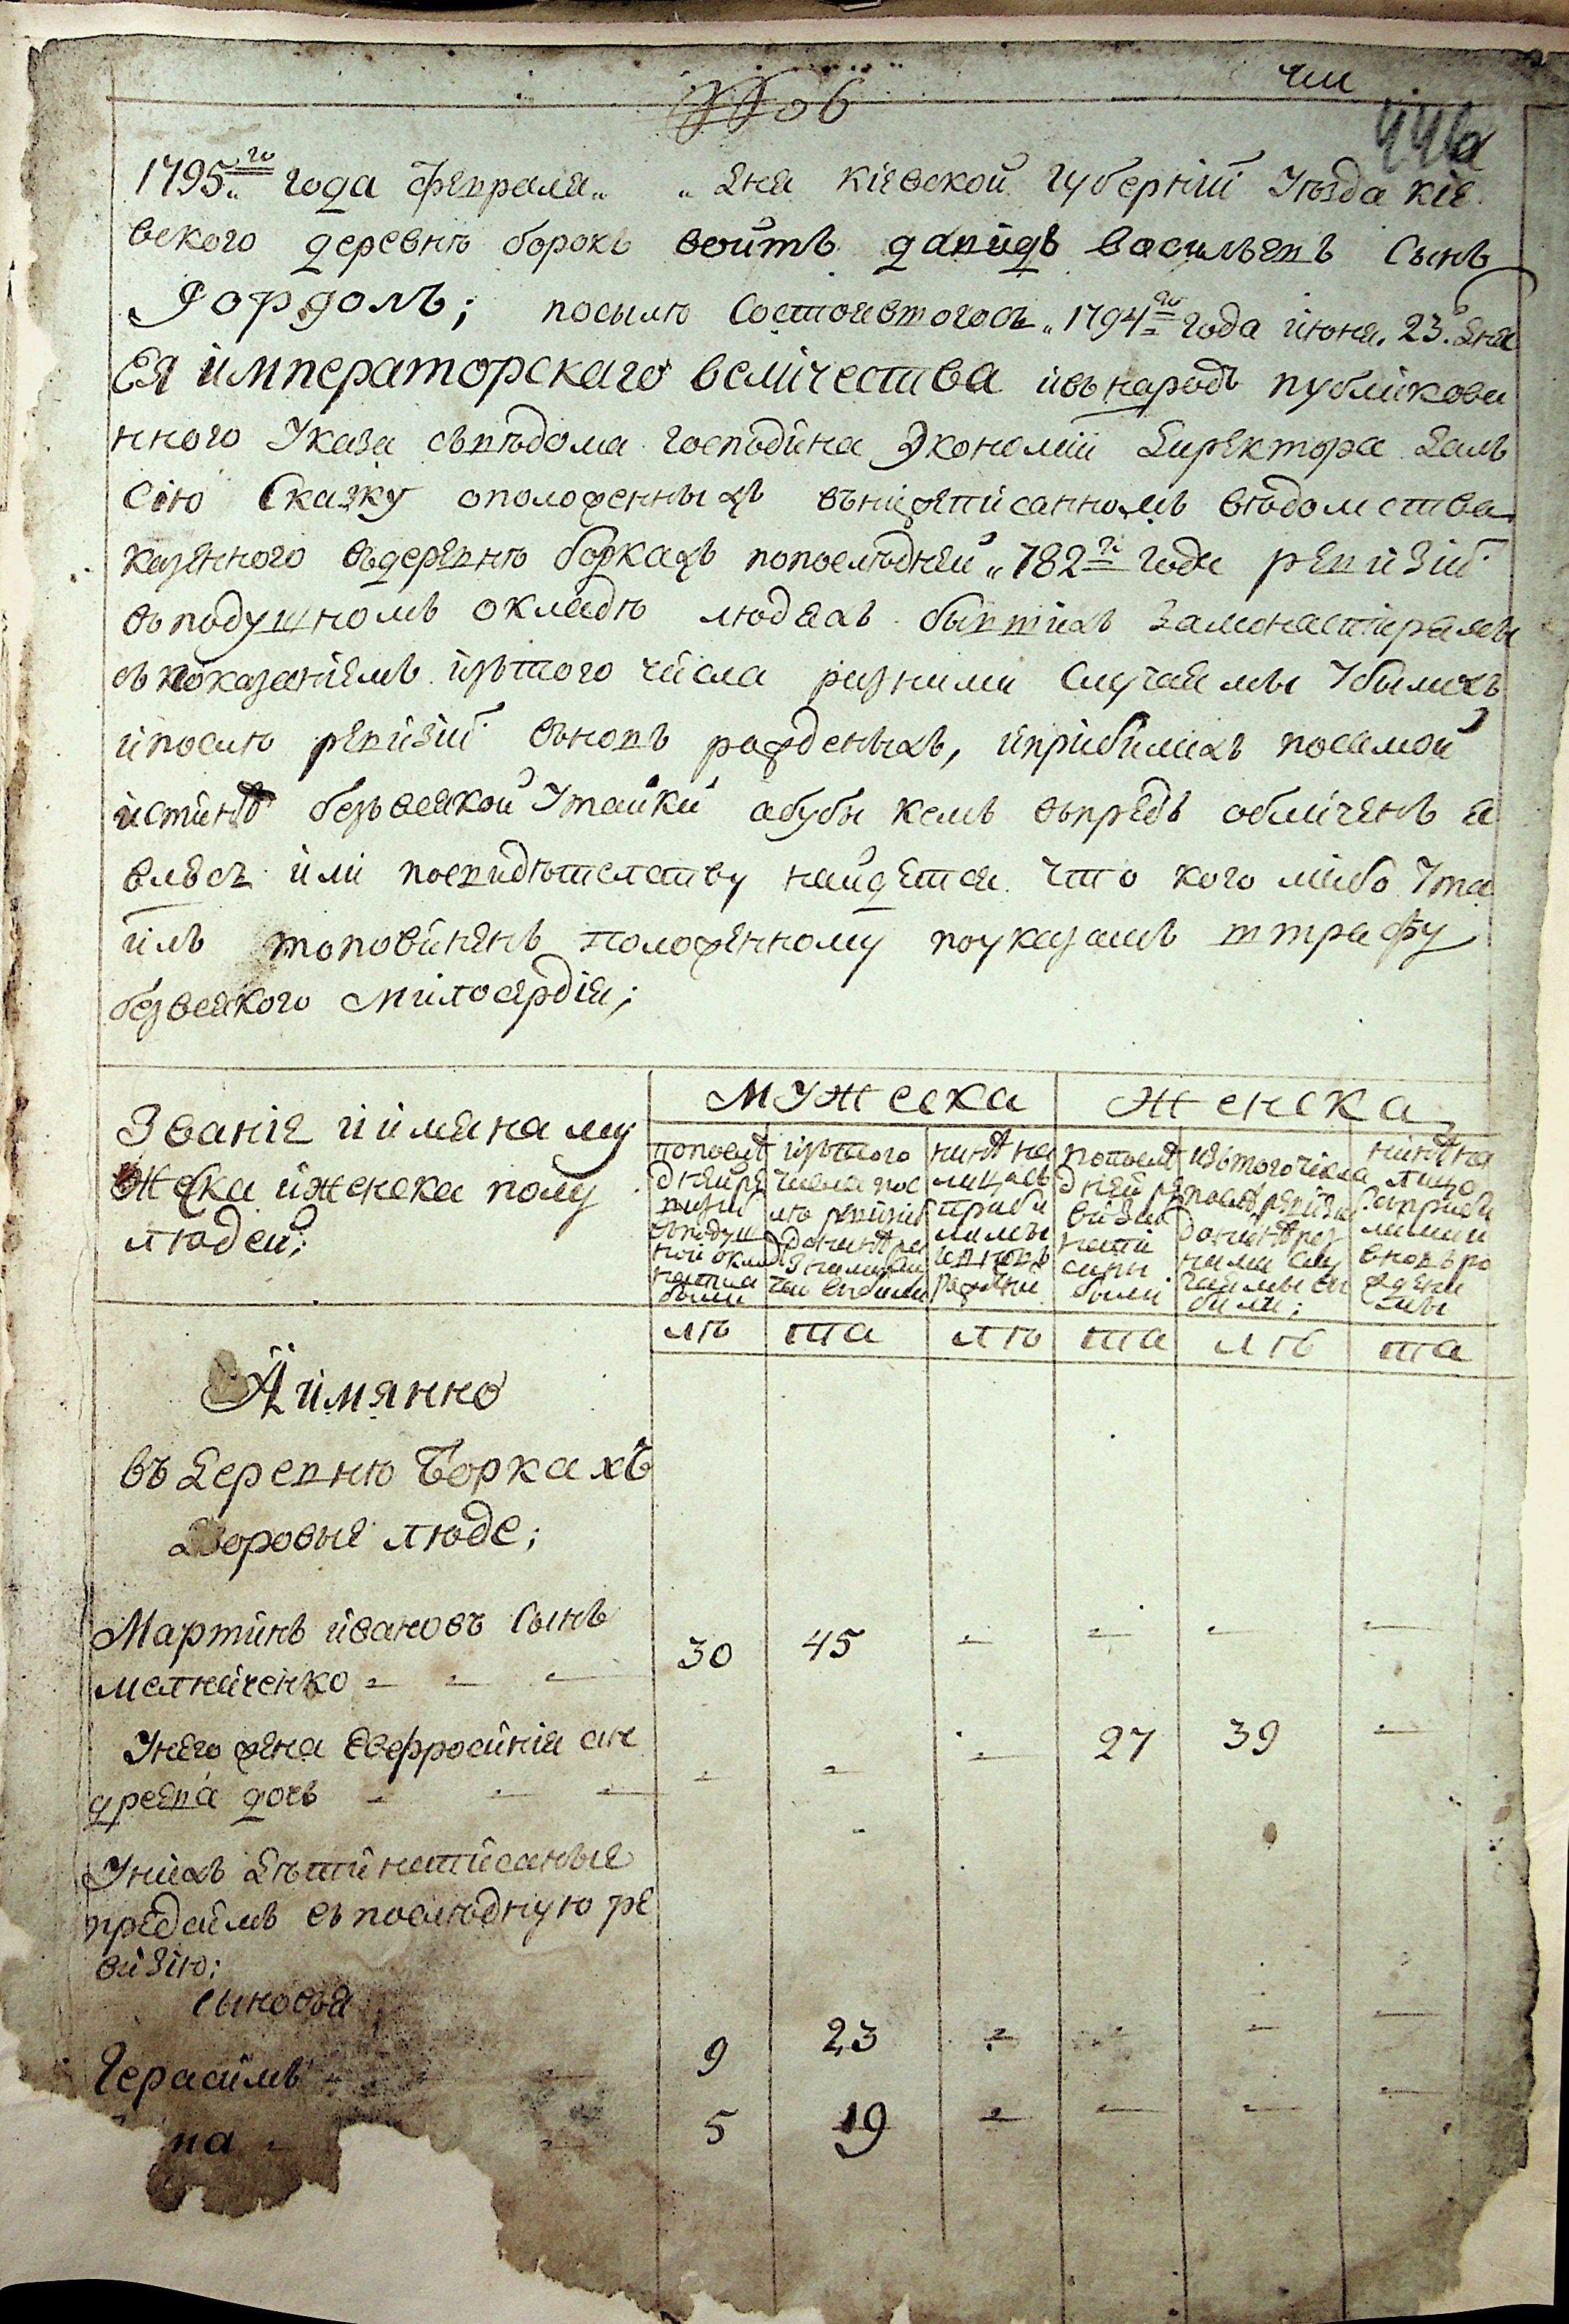 чи
446
1795.го года февраля „ „ дня киевской губернїи уезда кие
вского деревнѣ борокъ воитъ давидъ васильевъ сынъ
Гордолъ; посылѣ состоявшогось „1794го года июня. 23. дня
Ея императорскаго величества ивънародъ публикова
нного указа съвѣдома господина экономїи директора далъ
сїю сказку оположенныхъ вънижеписанномъ вѣдомства
казенного въдеревнѣ боркахъ попослѣдней „782го года ревизїи
въподушномъ окладѣ людяхъ бывшихъ замонастирями
съпоказанїемъ изътого числа разними случаями убылихъ
ипослѣ ревизїи вьновъ рожденыхъ, иприбилихъ посамой
истинѣ безъвсякой утайки абубы кемъ въпредь обличенъ я
влюсъ или посвидѣтелству найдется что кого либо ута
илъ топовиненъ положенному поуказамъ штрафу
безвсякого милосердїя;
Званїе иимяна му
жеска иженска полу
людей;
мужеска
женска
попослѣ
дней ре
визїи
въподуш
ной окла
написа
были
изътого
числа пос
лѣ ревизїи
донинѣ ра
зними слу
чаи выбили
нинѣ на
лицо съ
приби
лими
ивновь
рожден
попослѣ
дней ре
визїи
напи
сани
были
изътого числа
послѣ ревизїи
донинѣ раз
ними слу
чаями ви
били;
нинѣ на
лицо
съприби
лими и
вновъ ро
ждени
ми
лѣ
та
лѣ
та
лѣ
та
Аимянно
въ деревнѣ Боркахъ
Дворовые люде;
Мартинъ ивановъ сынъ
мелниченко - - - 30 45 - - - -
Унего жена евфросинїя ан
дреева дочь - - - - - - 27 39 -
Унихъ дѣти написаные
предаимъ въпослѣдную ре
визїю;
сыновья
Герасимъ 9 23 - - - -
ва - 5 19 - - - -